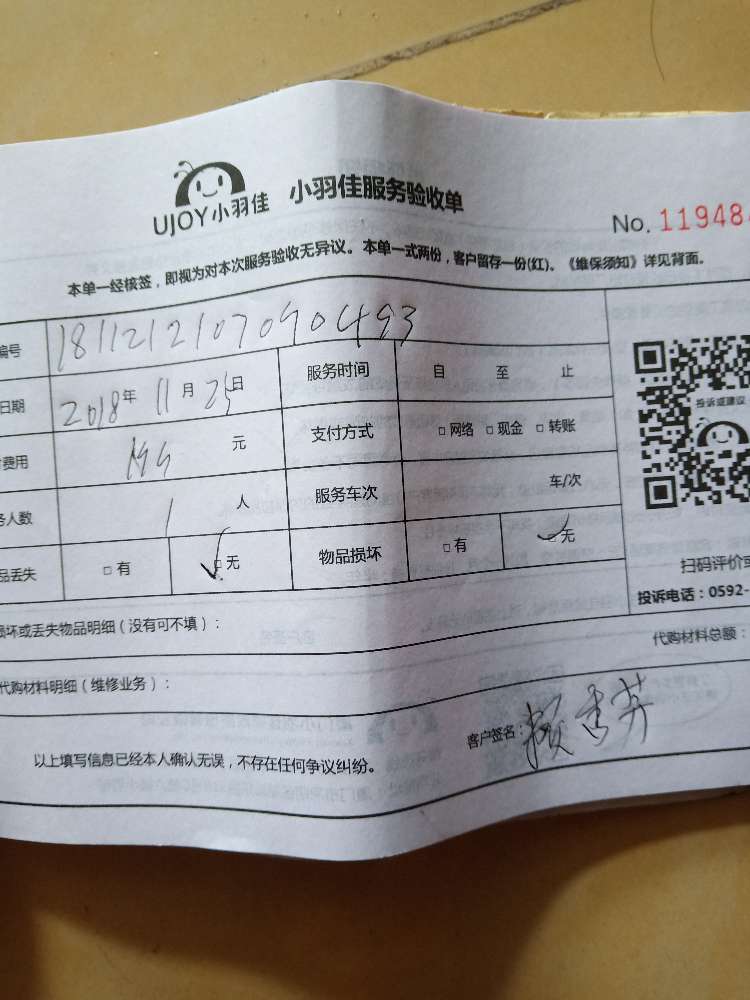 UJOY小羽佳 小羽佳服务验收单
No. 11948
本单一经核签，即视为对本次服务验收无异议。本单一式两份，客户留存一份(红)。《维保须知》详见背面。
编号 181121210709 0493
日期 2018年 11月 25日 服务时间 自 至 止
费用 元 支付方式 □网络 □现金 □转账
人数 1 人 服务车次 车/次
品丢失 □有 □无 物品损坏 □有 □无
投诉或建议
扫码评价或
投诉电话：0592-
损坏或丢失物品明细（没有可不填）：
代购材料总额：
代购材料明细（维修业务）：
客户签名：赖秀英
以上填写信息已经本人确认无误，不存在任何争议纠纷。